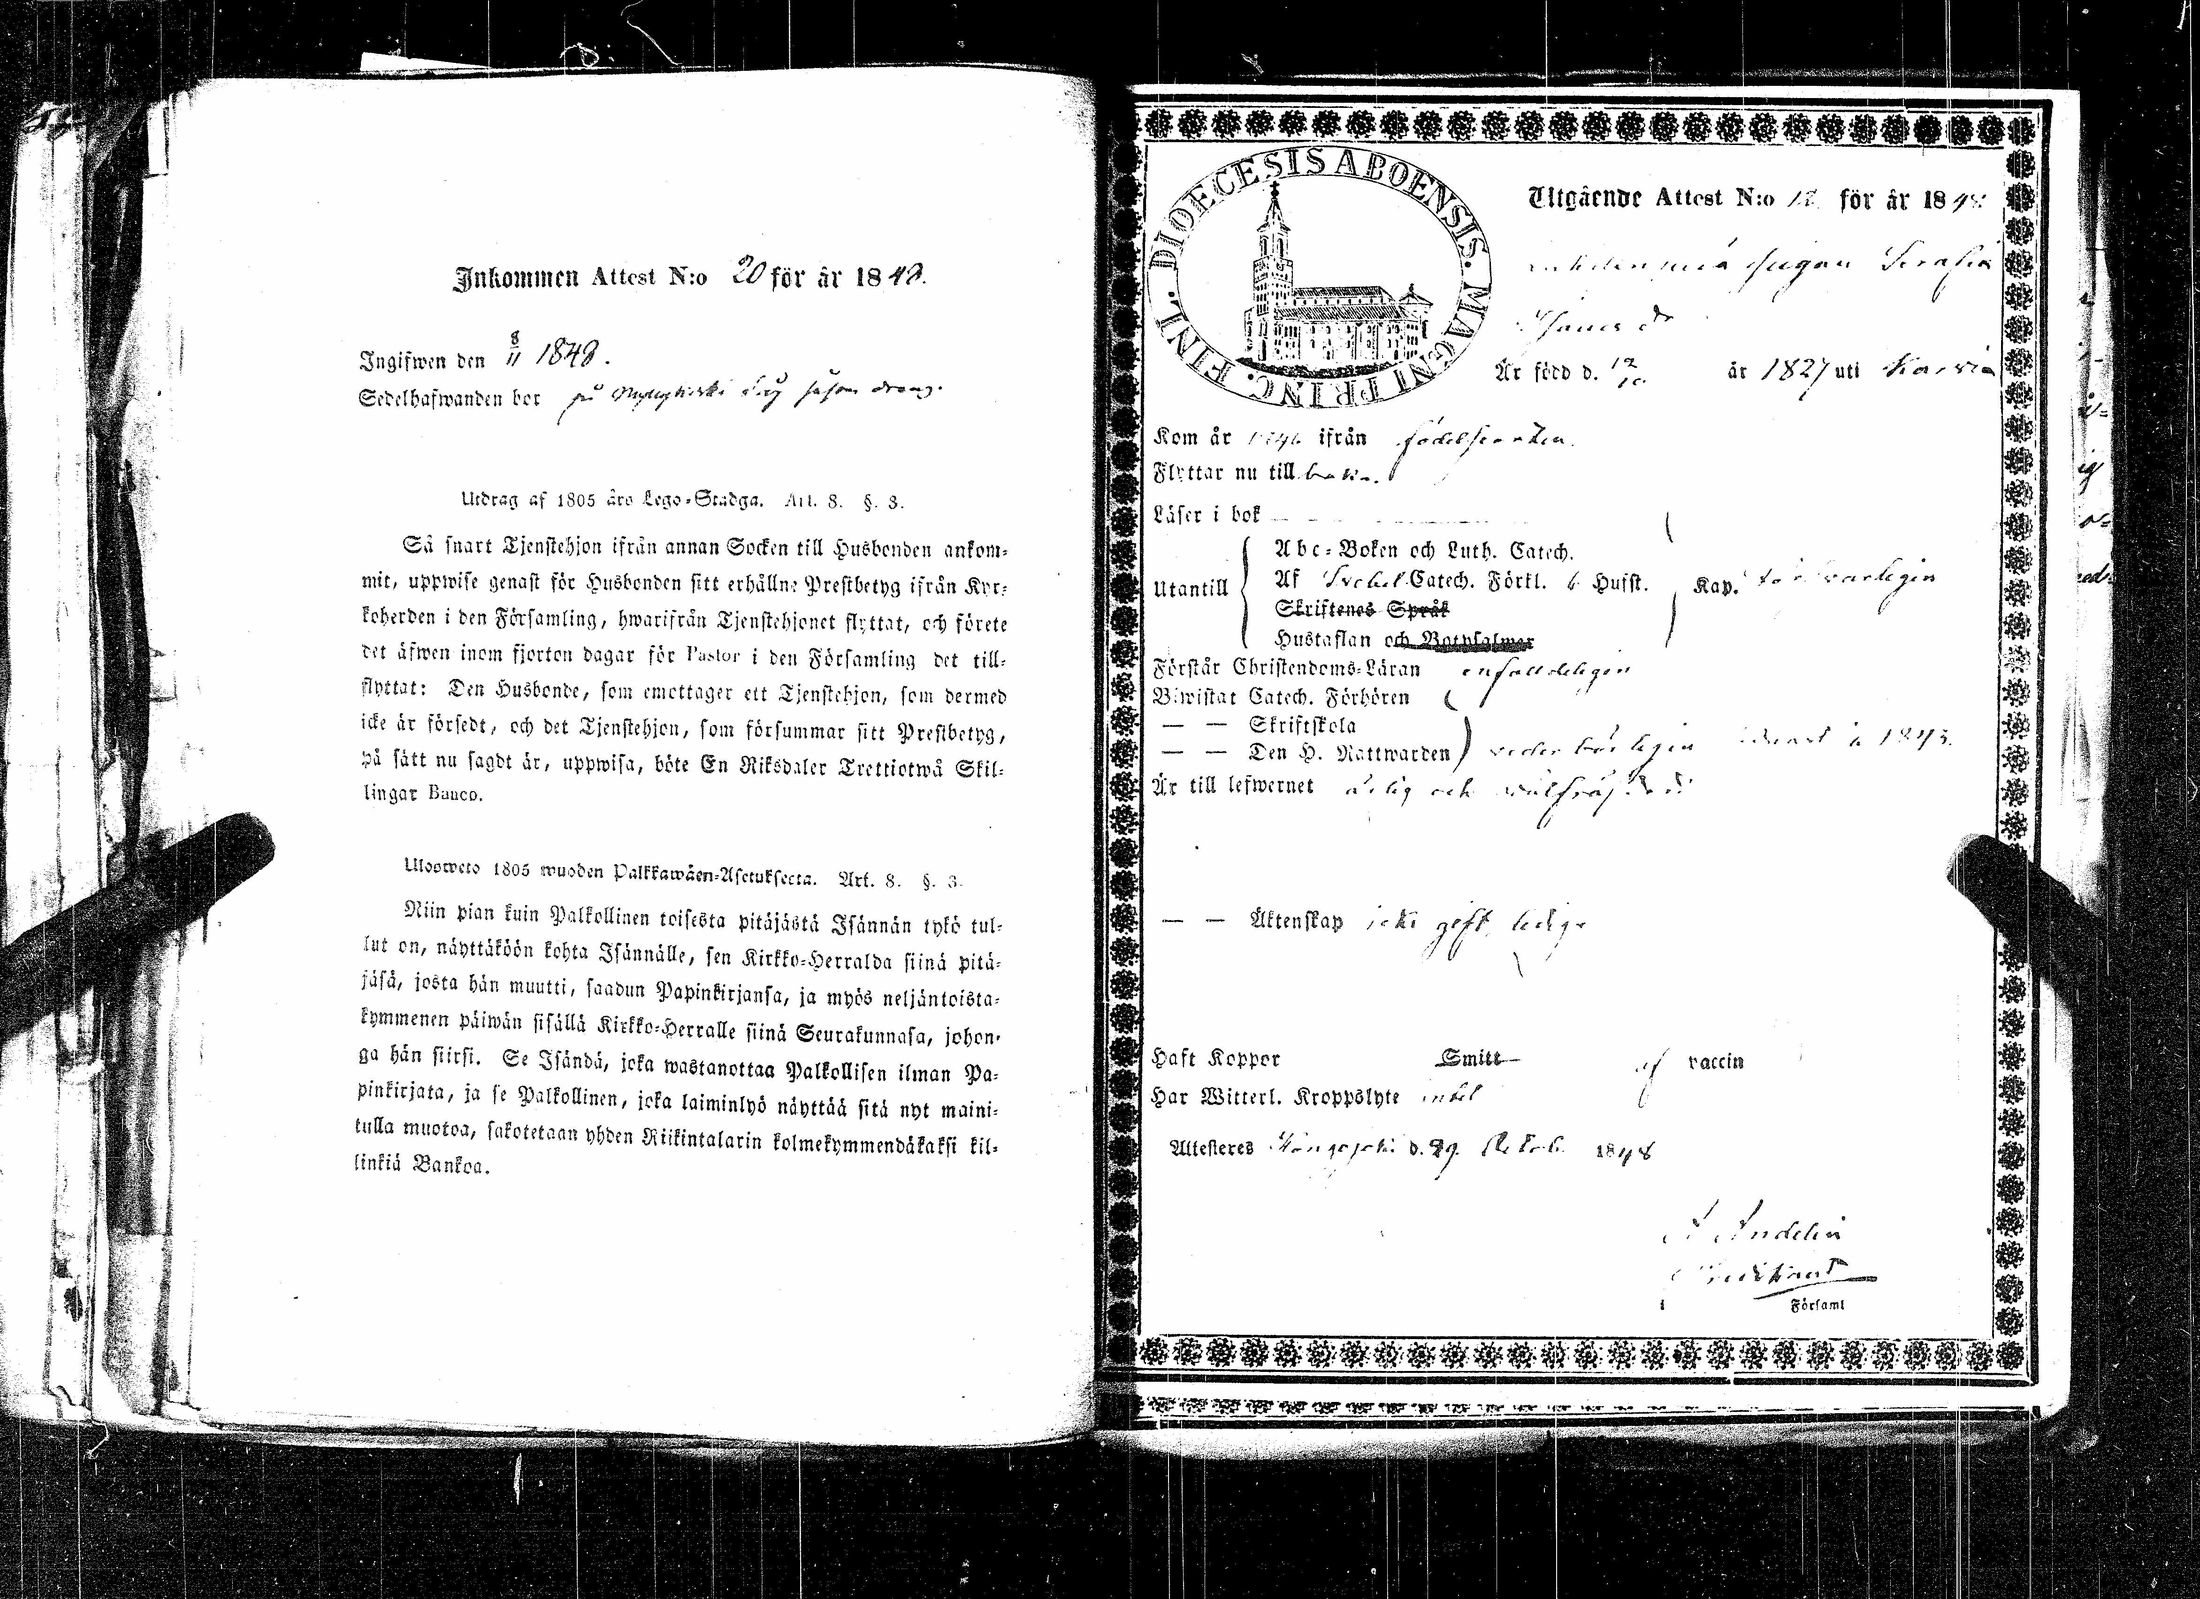 Inkommen Attest N:o 20 för år 1848.
Ingifwen den 8/11 1848.
Sedelhafwanden bor på såsom dräng.
Utdrag af 1805 års Lego-Stadga. Art. 8. §. 3.
Så snart Tjenstehjon ifrån annan Socken till Husbonden ankom-
mit, uppwise genast för Husbonden sitt erhållne Prestbetyg ifrån Kyr-
koherden i den Församling, hwarifrån Tjenstehjonet flyttat, och förete
det äfwen inom fjorton dagar för Pastor i den Församling det till-
flyttat: Den Husbonde, som emottager ett Tjenstehjon, som dermed
icke är försedt, och det Tjenstehjon, som försummar sitt Prestbetyg,
på sätt nu sagdt är, uppwisa, böte En Riksdaler Trettiotwå Skil-
lingar Banco.
Ulosweto 1805 wuoden Palkkawäen-Asetuksesta. Art. 8. §. 3.
Niin pian kuin Palkollinen toisesta pitäjästä Isännän tykö tul-
lut on, näyttäköön kohta Isännälle, sen Kirkko-Herralda siinä pitä-
jäsä, josta hän muutti, saadun Papinkirjansa, ja myös neljäntoista-
kymmenen päiwän sisällä Kirkko-Herralle siinä Seurakunnasa, johon-
ga hän siirsi. Se Isändä, joka wastanottaa Palkollisen ilman Pa-
pinkirjata, ja se Palkollinen, joka laiminlyö näyttää sitä nyt maini-
tulla muotoa, sakotetaan yhden Riikintalarin kolmekymmendäkaksi kil-
linkiä Bankoa.
DIOECESIS ABOENSIS. MAGNI PRINC. FINL.
Utgående Attest N:o 12 för år 1848
pigan Serafia
Är född d. 12/10 år 1827 uti Karvia
Kom år ifrån födelseorten.
Flyttar nu till baka.
Läser i bok
Utantill
Abc-Boken och Luth. Catech.
Af Svebel. Catech. Förkl. 6 Hufst. Kap. försvarligen
Skriftenes Språk
Hustaflan och Botpsalmer
Förstår Christendoms-Läran enfaldeligen
Biwistat Catech. Förhören
— — Skriftskola
— — Den H. Nattwarden vederbörligen senast i 1848.
Är till lefwernet ärlig och wälfräjdad
— — Äktenskap icke gift, ledig
Haft Koppor Smitt af vaccin
Har Witterl. Kroppslyte intet
Attesteres Kongsjoki d. 29. Octob. 1848
Indelin
Predikant
i Församl